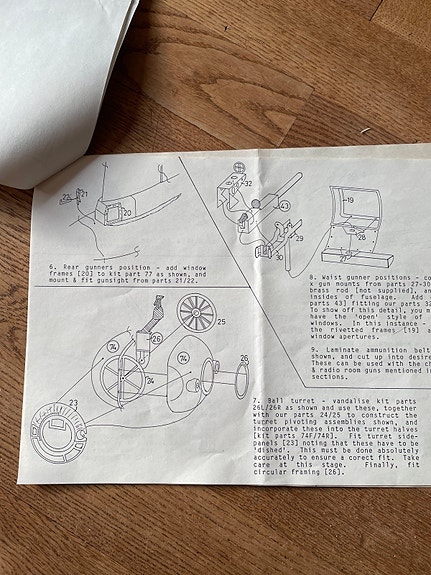 22
21
20
6. Rear gunners position - add window
frames [20] to kit part 77 as shown, and
mount & fit gunsight from parts 21/22.
32
43
29
30
19
28
8. Waist gunner positions - co
x gun mounts from parts 27-30
brass rod [not supplied], an
insides of fuselage. Add
parts 43] fitting our parts 32
To show off this detail, you m
have the 'open' style of
windows. In this instance -
the rivetted frames [19]
window apertures.
9. Laminate ammunition bel
shown, and cut up into desire
These can be used with the ch
& radio room guns mentioned i
sections.
25
26
74
74
24
24
74
26
23
7. Ball turret - vandalise kit parts
26L/26R as shown and use these, together
with our parts 24/25 to construct the
turret pivoting assemblies shown, and
incorporate these into the turret halves
[kit parts 74F/74R]. Fit turret side-
panels [23] noting that these have to be
'dished'. This must be done absolutely
accurately to ensure a corect fit. Take
care at this stage. Finally, fit
circular framing [26].